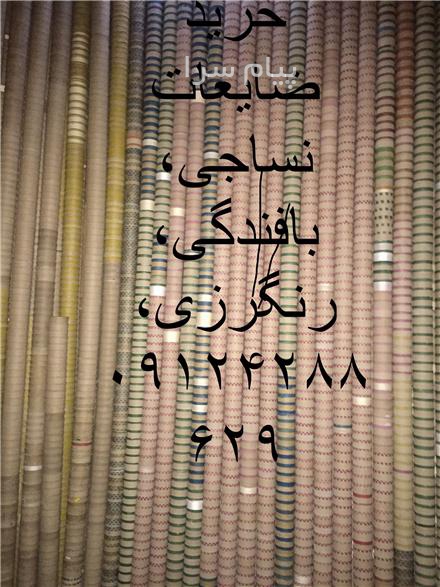 خرید
پیام سرا
ضایعات
نساجی،
بافندگی،
رنگرزی،
۰۹۱۲۴۲۸۸
۶۲۹